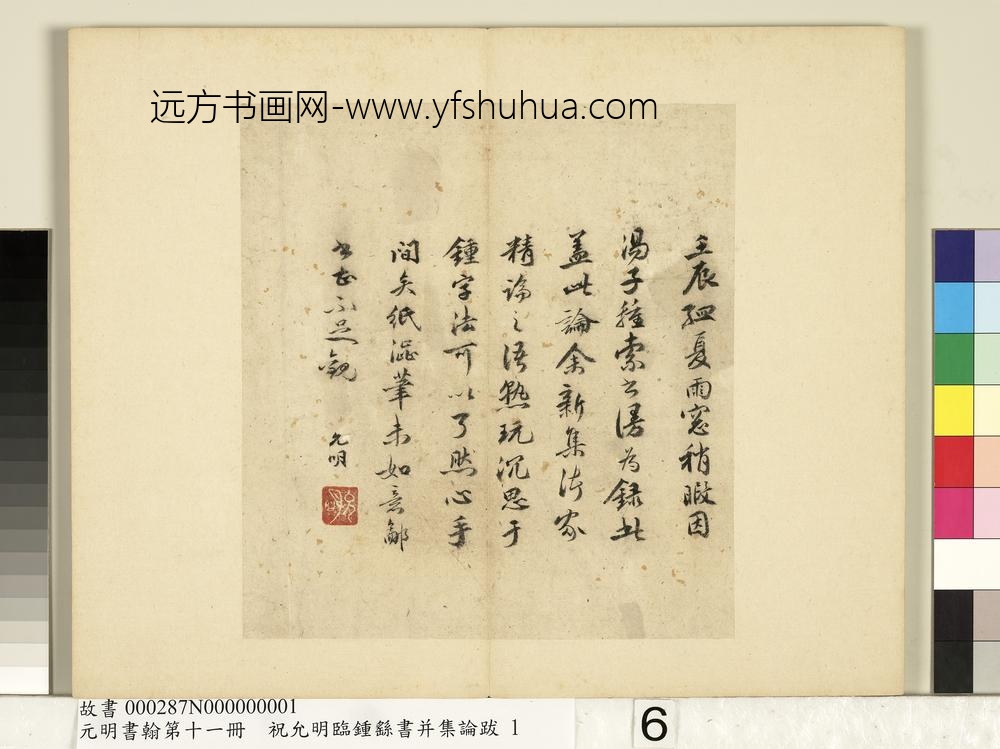 远方书画网-www.yfshuhua.com
壬辰孟夏雨窓稍暇因
湯子種索書漫為録此
蓋此論余新集諸家
精論之語熟玩沉思于
鍾字法可以了然心手
間矣紙澁筆未如意鄙
書甚不足觀 允明
故書 000287N000000001
元明書翰第十一冊 祝允明臨鍾繇書并集論跋 1
6